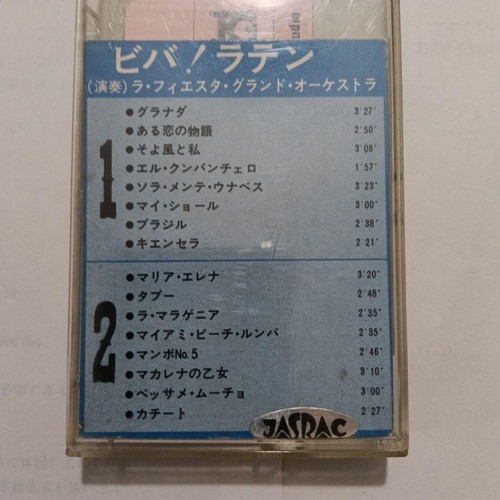 ビバ!ラテン
(演奏)ラ・フィエスタ・グランド・オーケストラ
1
●グラナダ 3'27"
●ある恋の物語 2'50"
●そよ風と私 3'08"
●エル・クンバンチェロ 1'57"
●ソラ・メンテ・ウナベス 3'23"
●マイ・ショール 3'00"
●ブラジル 2'38"
●キエンセラ 2'21"
2
●マリア・エレナ 3'20"
●タブー 2'48"
●ラ・マラゲニア 2'35"
●マイアミ・ビーチ・ルンバ 2'35"
●マンボNo.5 2'46"
●マカレナの乙女 3'10"
●ベッサメ・ムーチョ 3'00"
●カチート 2'27"
JASRAC